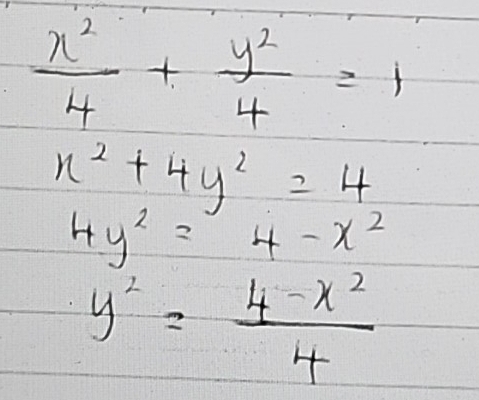 x²/4 + y²/4 = 1
x² + 4y² = 4
4y² = 4 - x²
y² = (4 - x²)/4